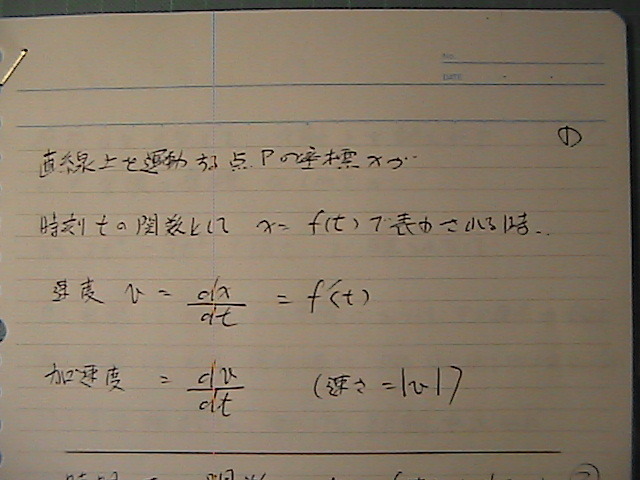 NO.
DATE
①
直線上を運動する点Pの座標xが
時刻tの関数として x = f(t)で表わされる時..
速度 v = dx/dt = f'(t)
加速度 = dv/dt (速さ = |v|)